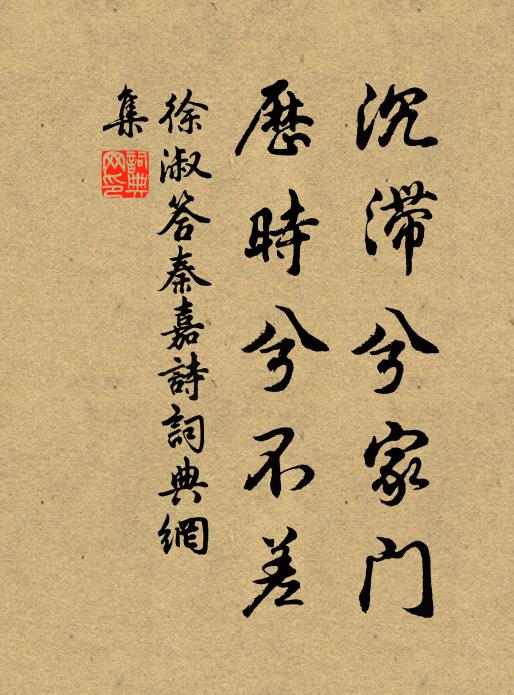 沉滯兮家門
歷時兮不差
徐淑答秦嘉詩詞典網
集
詞典
网印